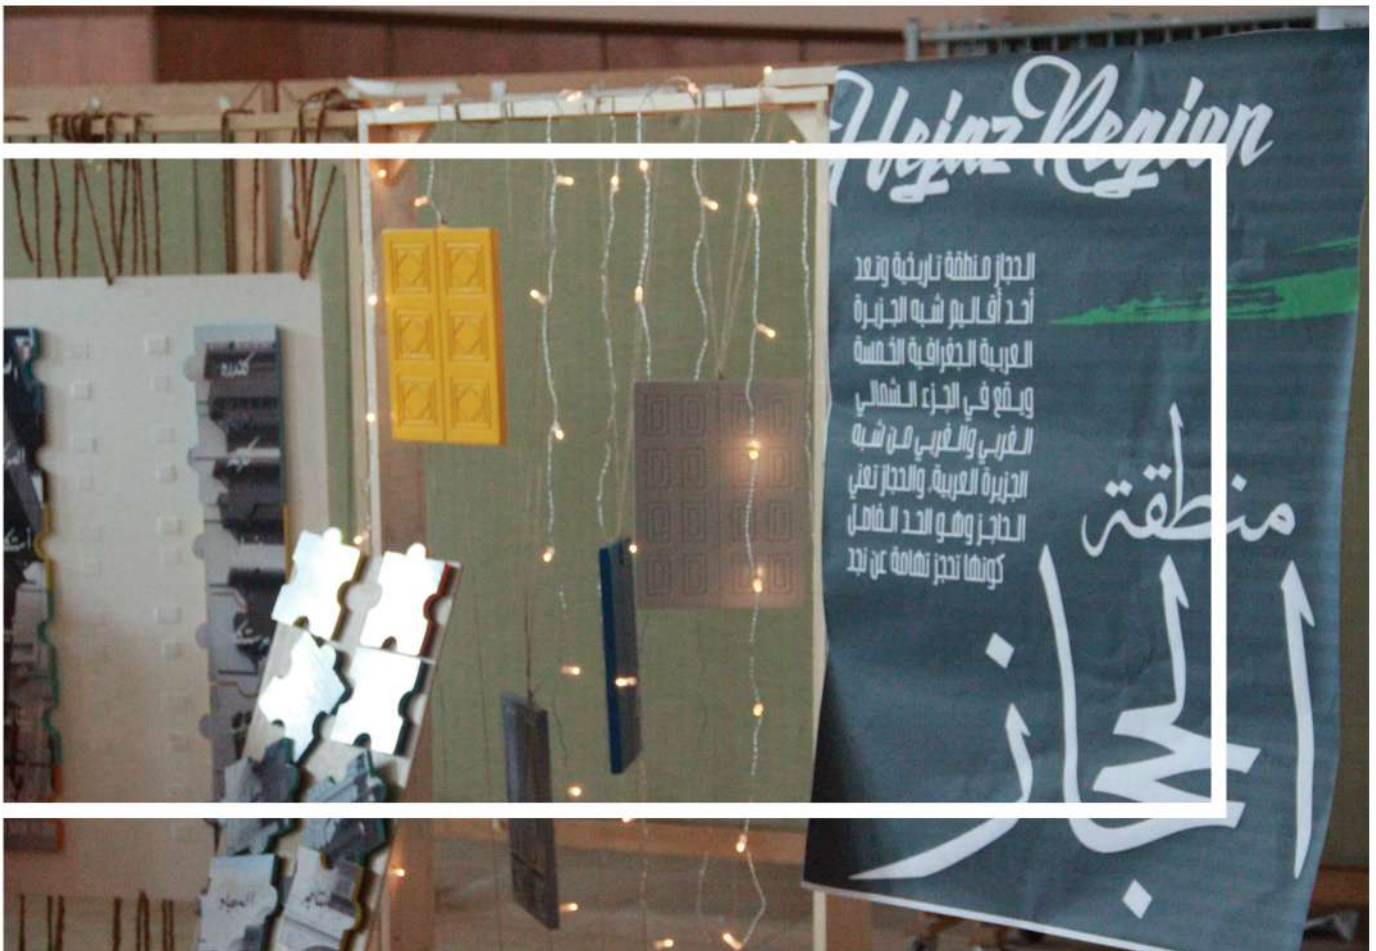 Hejaz Region
الحجاز منطقة تاريخية وتعد
أحد أقاليم شبه الجزيرة
العربية الجغرافية الخمسة
ويقع في الجزء الشمالي
الغربي والغربي من شبه
الجزيرة العربية، والحجاز تعني
الحاجز وهو الحد الفاصل
كونها تحجز تهامة عن نجد
منطقة
الحجاز